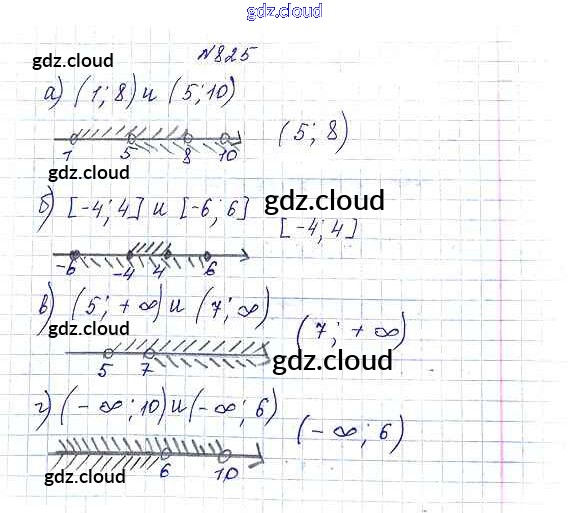 gdz.cloud
№825
gdz.cloud
а) (1; 8) и (5; 10)
(5; 8)
1 5 8 10
gdz.cloud
б) [-4; 4] и [-6; 6]
gdz.cloud
[-4; 4]
-6 -4 4 6
в) (5; +∞) и (7; ∞)
gdz.cloud
(7; +∞)
5 7
gdz.cloud
г) (-∞; 10) и (-∞; 6)
(-∞; 6)
6 10
gdz.cloud